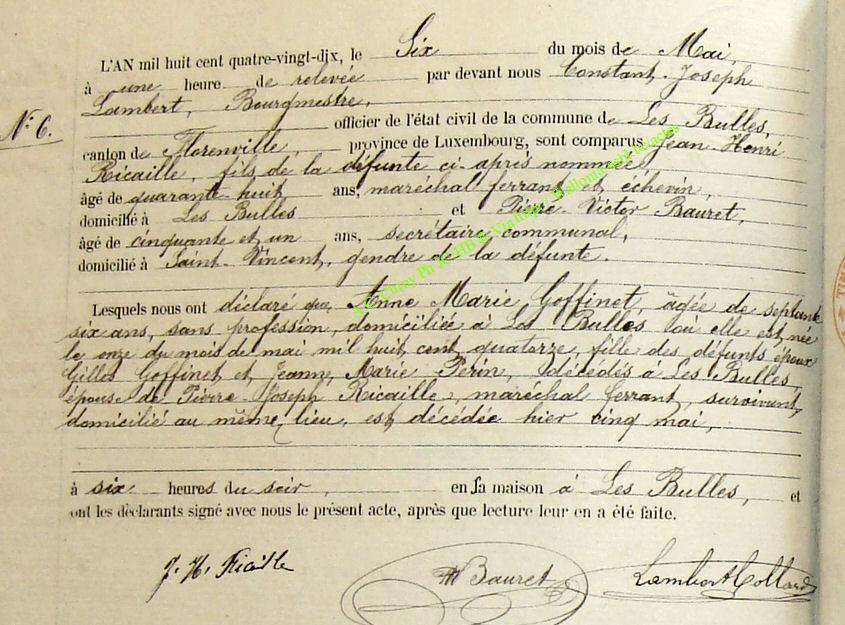 L'AN mil huit cent quatre-vingt-dix, le Six du mois de Mai,
à une heure de relevée par devant nous Constant-Joseph
Lambert, Bourgmestre,
N° 6.
officier de l'état civil de la commune de Les Bulles,
canton de Florenville, province de Luxembourg, sont comparus Jean-Henri
Ricaille, fils de la défunte ci-après nommée,
âgé de quarante-huit ans, maréchal ferrant et échevin,
domicilié à Les Bulles et Pierre-Victor Bauret,
âgé de cinquante et un ans, secrétaire communal,
domicilié à Saint-Vincent, gendre de la défunte.
Lesquels nous ont déclaré que Anne Marie Goffinet, âgée de septante
six ans, sans profession, domiciliée à Les Bulles où elle est née
le onze du mois de mai mil huit cent quatorze, fille des défunts époux
Gilles Goffinet et Jeanne Marie Perin, décédés à Les Bulles,
épouse de Pierre-Joseph Ricaille, maréchal ferrant, survivant,
domicilié au même lieu, est décédée hier cinq mai,
à six heures du soir, en sa maison à Les Bulles, et
ont les déclarants signé avec nous le présent acte, après que lecture leur en a été faite.
J. H. Ricaille Bauret Lambert Collard